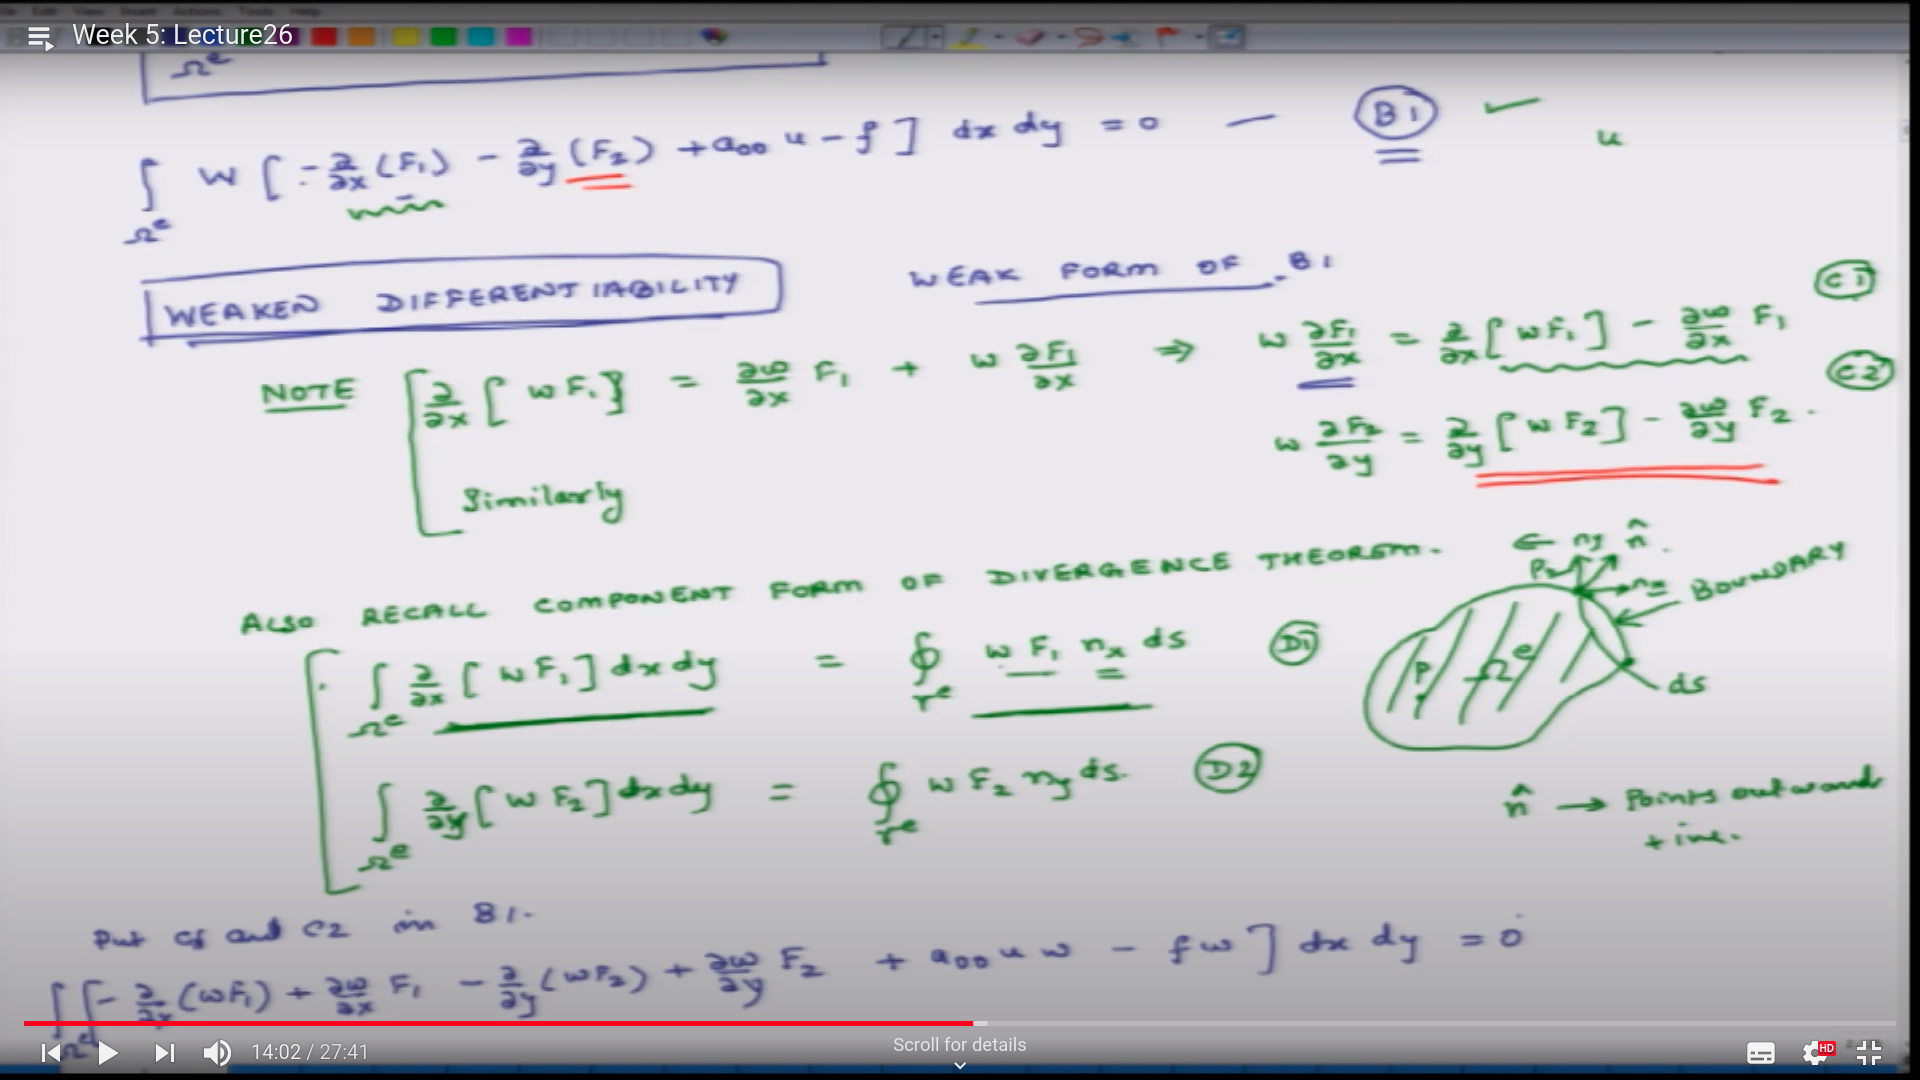 Week 5: Lecture26
Ωᵉ
∫_Ωᵉ w [ -∂/∂x (F₁) - ∂/∂y (F₂) + a₀₀ u - f ] dx dy = 0 — B1 ✓
u
WEAKEN DIFFERENTIABILITY WEAK FORM OF B1
NOTE ∂/∂x [ wF₁ ] = ∂w/∂x F₁ + w ∂F₁/∂x ⇒ w ∂F₁/∂x = ∂/∂x [ wF₁ ] - ∂w/∂x F₁ C1
w ∂F₂/∂y = ∂/∂y [ wF₂ ] - ∂w/∂y F₂ . C2
Similarly
ALSO RECALL COMPONENT FORM OF DIVERGENCE THEOREM.
∫_Ωᵉ ∂/∂x [ wF₁ ] dx dy = ∮_Γᵉ w F₁ nₓ ds D1
∫_Ωᵉ ∂/∂y [ wF₂ ] dx dy = ∮_Γᵉ w F₂ n_y ds. D2
← n_y n̂
P₂ nₓ BOUNDARY
P Ωᵉ
ds
n̂ → Points outwards
+ive.
Put C1 and C2 in B1.
∫_Ωᵉ [ -∂/∂x (wF₁) + ∂w/∂x F₁ - ∂/∂y (wF₂) + ∂w/∂y F₂ + a₀₀ u w - f w ] dx dy = 0
14:02 / 27:41
Scroll for details
HD